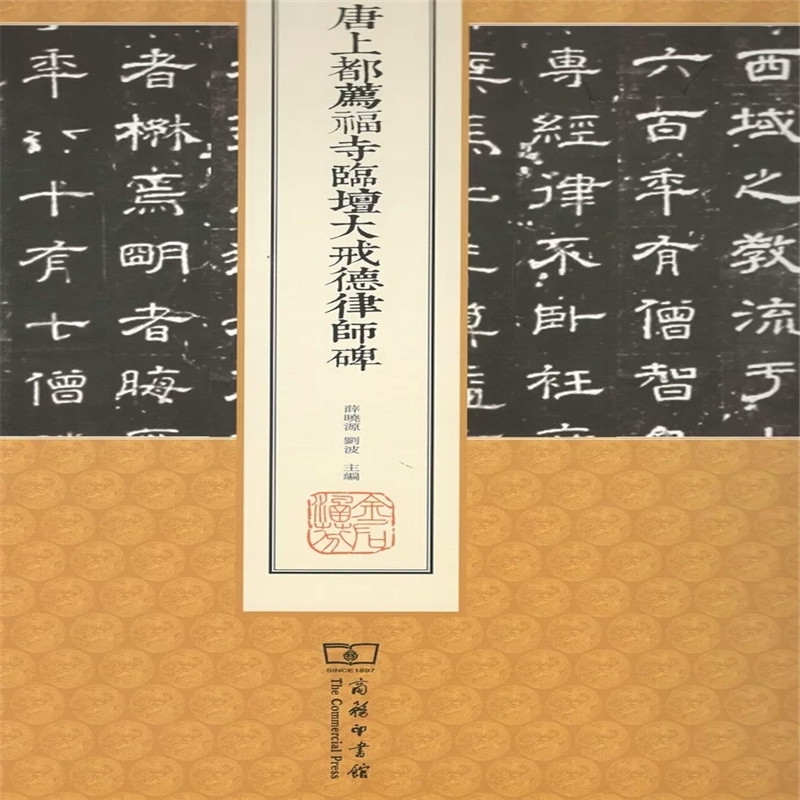 西域之教流于
六百年有僧智
專經律不卧衽
唐上都薦福寺臨壇大戒德律師碑
薛曉源 劉波 主編
金石
者楙焉明者晦
年八十有七僧
SINCE 1897
商務印書館
The Commercial Press